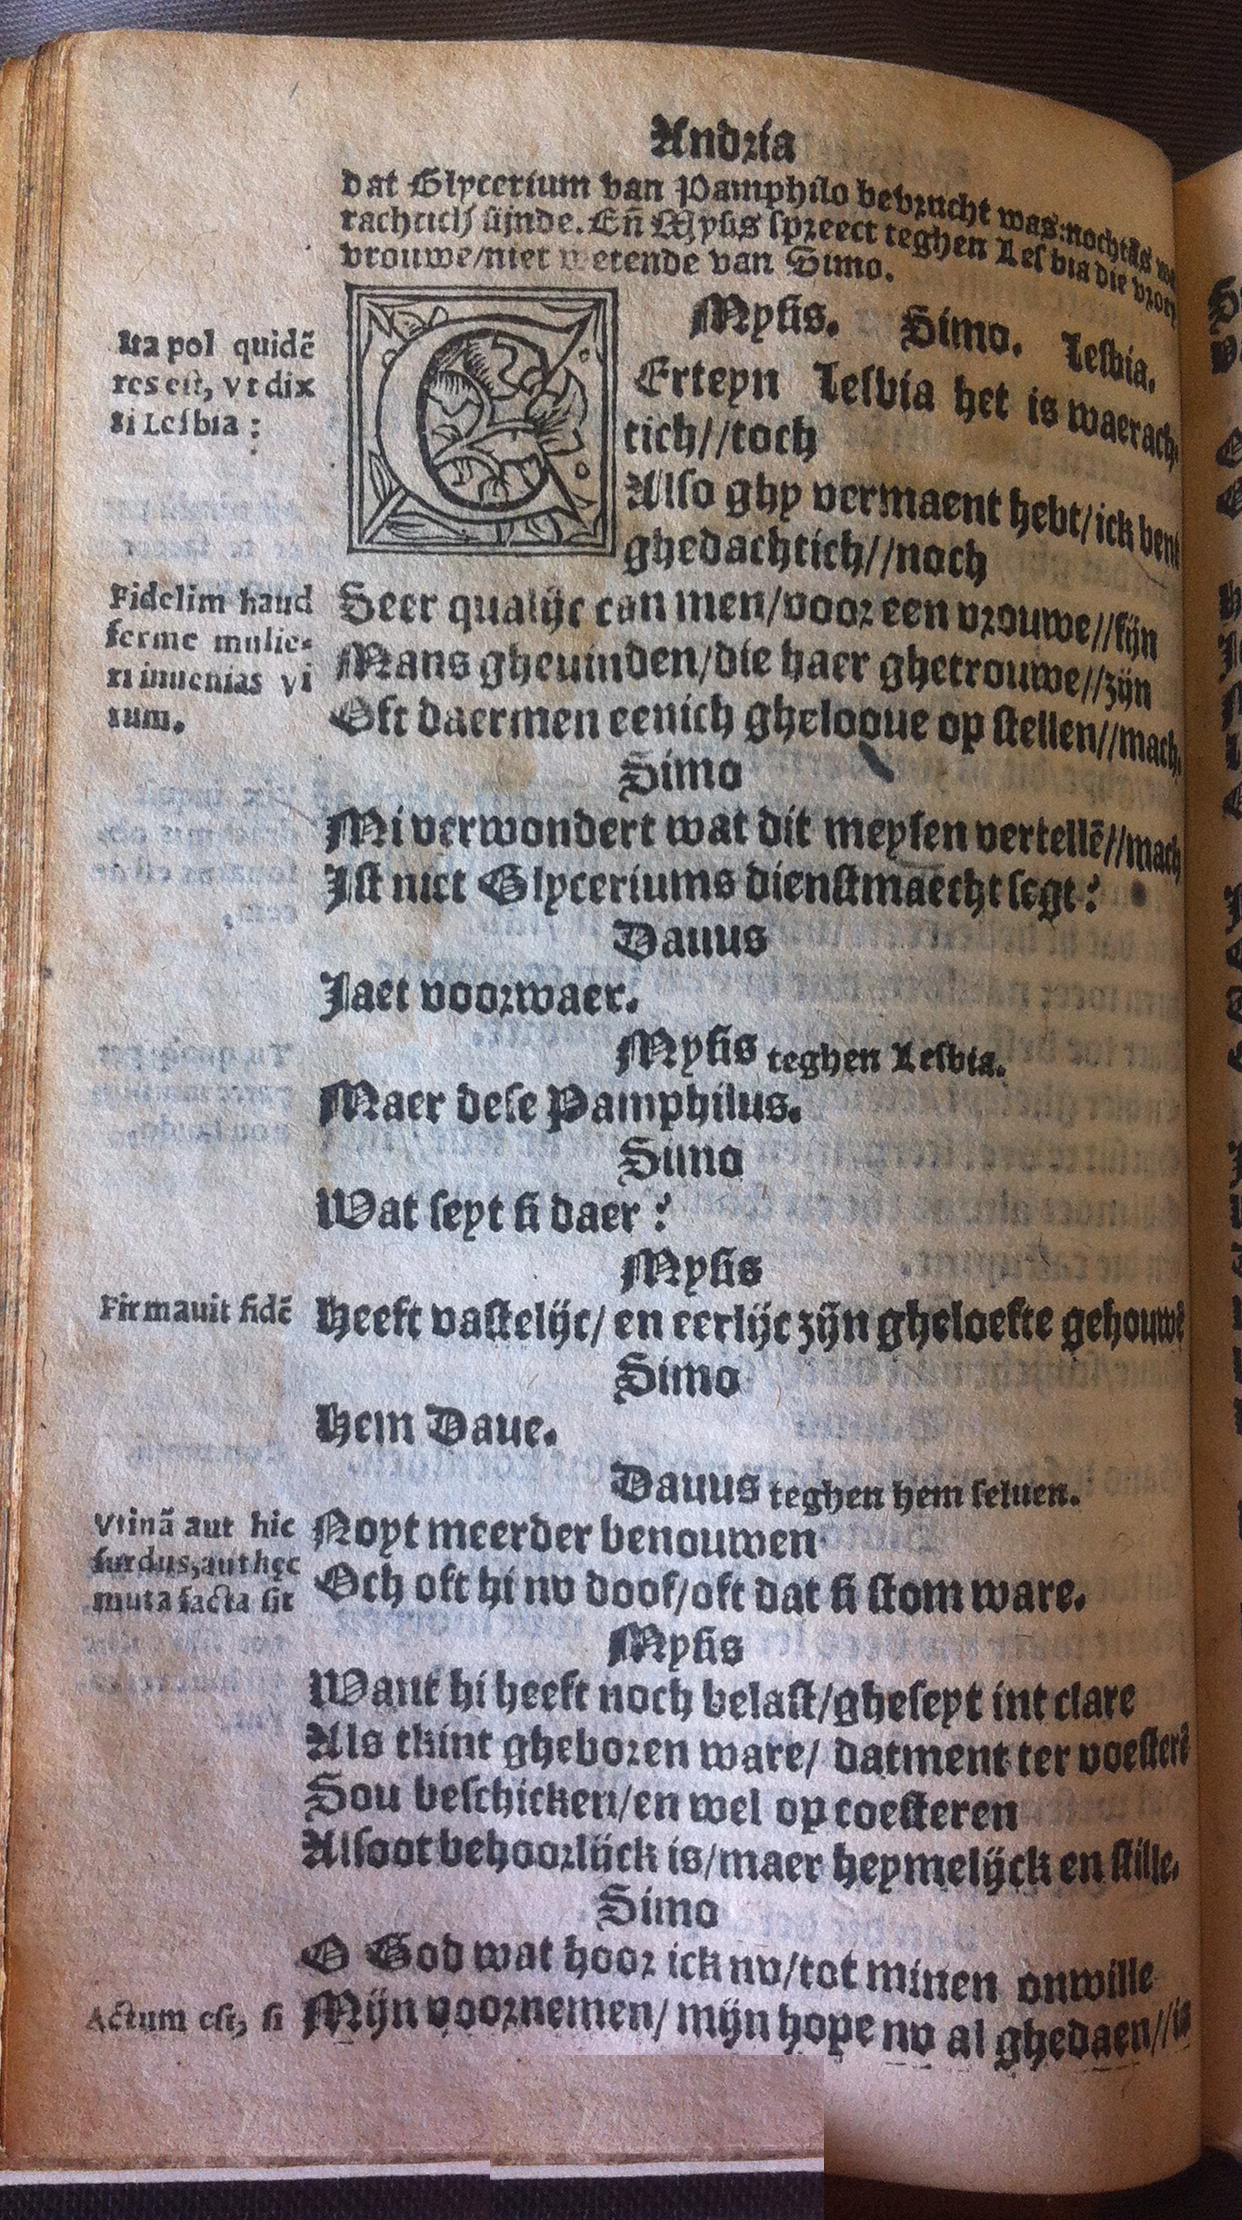 Andria
dat Glycerium van Pamphilo bevrucht was: nochtãs
rachtich sijnde. Eñ Mysis spreect teghen Lesbia die vroet
vrouwe/niet wetende van Simo.
Mysis. Simo. Lesbia.
Ita pol quidẽ
res est, vt dix
ti Lesbia :
CErteyn Lesbia het is waerach,
tich//toch
Also ghy vermaent hebt/ick bent
ghedachtich//noch
Fidelim haud
ferme mulie-
ri inuenias vi
rum.
Seer qualijc can men/voor een vrouwe//fijn
Mans gheuinden/die haer ghetrouwe//zijn
Oft daermen eenich ghelooue op stellen//mach.
Simo
Mi verwondert wat dit meysen vertellẽ//mach
Ist niet Glyceriums dienstmaecht segt?
Dauus
Jaet voorwaer.
Mysis teghen Lesbia.
Maer dese Pamphilus.
Simo
Wat seyt si daer?
Mysis
Firmauit fidẽ
Heeft vastelijc/ en eerlijc zijn gheloefte gehouwẽ
Simo
Hem Daue.
Dauus teghen hem seluen.
Vtinã aut hic
surdus, aut hęc
muta facta sit
Noyt meerder benouwen
Och oft hi nv doof/oft dat si stom ware.
Mysis
Want hi heeft noch belast/gheseyt int clare
Als tkint gheboren ware/ datment ter voesterẽ
Sou beschicken/en wel op coesteren
Alsoot behoorlijck is/maer heymelijck en stille.
Simo
O God wat hoor ick nv/tot minen onwille
Actum est, si
Mijn voornemen/ mijn hope nv al ghedaen//is